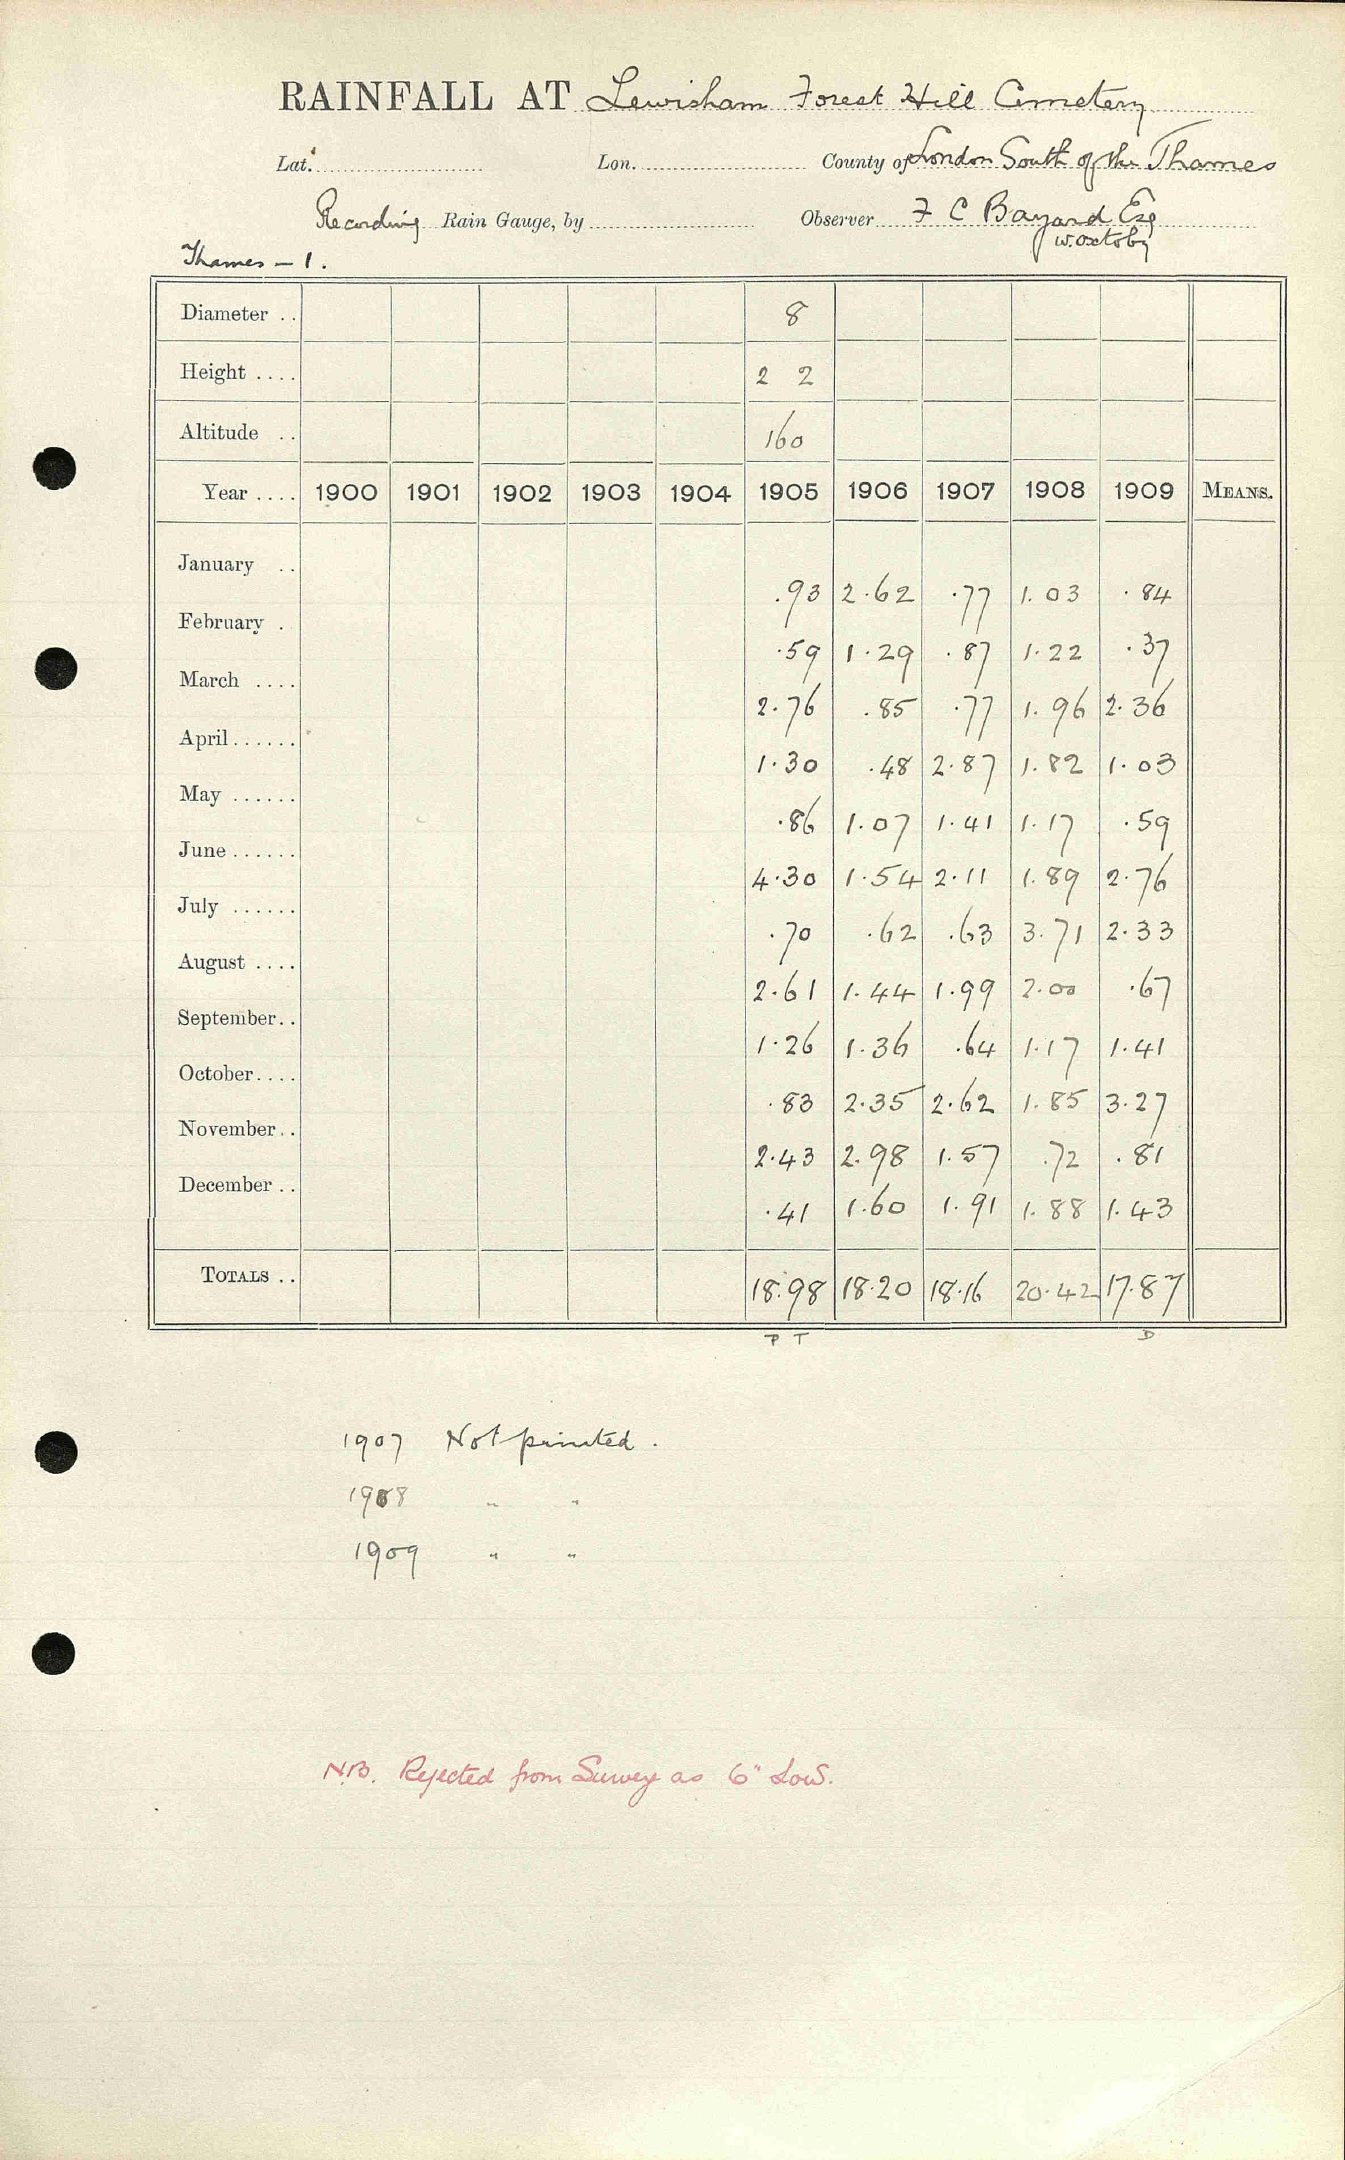 RAINFALL AT Lewisham Forest Hill Cemetery
Lat. Lon. County of London South of the Thames
Recording Rain Gauge, by Observer F C Bayard Esq
W. Oxtoby
Thames - 1.
Diameter .. 8
Height .... 2 2
Altitude .. 160
Year .... 1900 1901 1902 1903 1904 1905 1906 1907 1908 1909 MEANS.
January .. .93 2.62 .77 1.03 .84
February . .59 1.29 .87 1.22 .37
March .... 2.76 .85 .77 1.96 2.36
April...... 1.30 .48 2.87 1.82 1.03
May ...... .86 1.07 1.41 1.17 .59
June...... 4.30 1.54 2.11 1.89 2.76
July ...... .70 .62 .63 3.71 2.33
August .... 2.61 1.44 1.99 2.00 .67
September.. 1.26 1.36 .64 1.17 1.41
October.... .83 2.35 2.62 1.85 3.27
November.. 2.43 2.98 1.57 .72 .81
December .. .41 1.60 1.91 1.88 1.43
TOTALS .. 18.98 18.20 18.16 20.42 17.87
P T D
1907 Not printed.
1908 " "
1909 " "
N.B. Rejected from Survey as 6" Low.